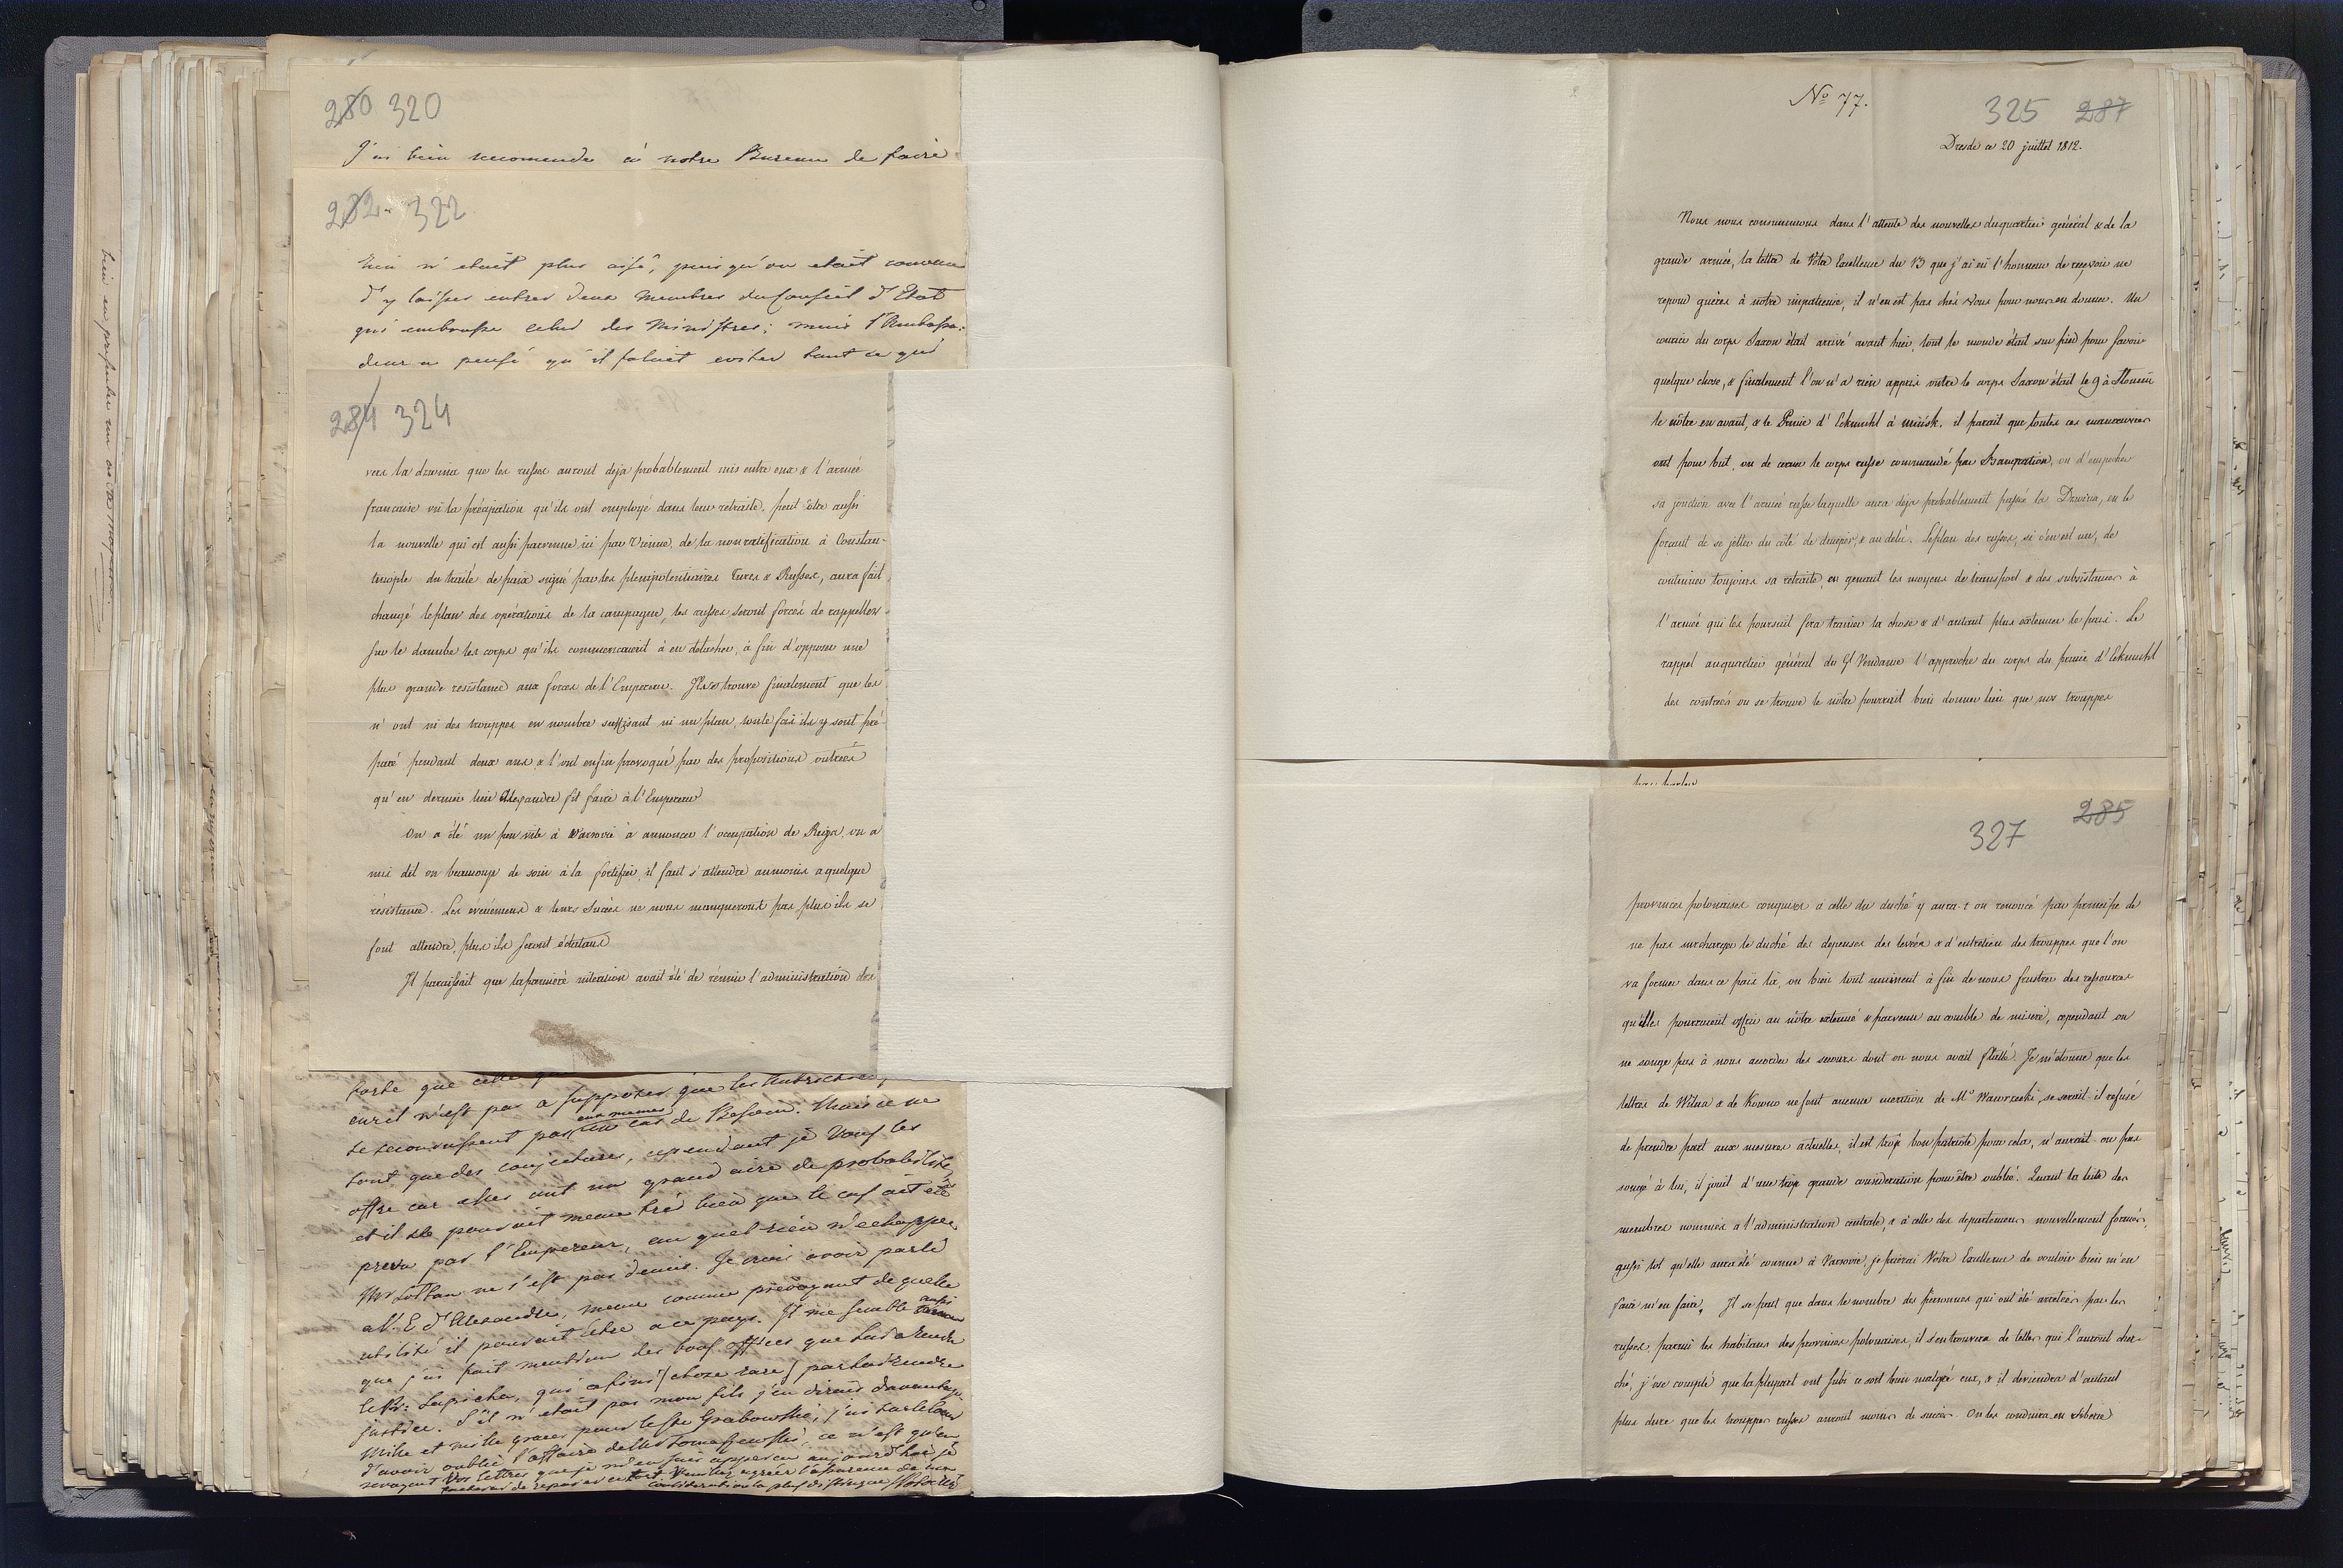 280 320
J'ai bien recomendé à notre Bureau de faire
282 322
rien n'etait plus aisé, puis qu'on etait convenu
d'y laisser entrer deux membres du Conseil d'Etat
qui embrasse celui des Ministres; mais l'Ambassa-
deur a pensé qu'il falait eviter tout ce qui
284 324
vers la dzwina que les russes auront deja probablement mis entre eux & l'armée
francaise vu la précipitation qu'ils ont employé dans leur retraite. peut être aussi
la nouvelle qui est aussi parvenue ici par Vienne, de la non ratification à Constan-
tinople du traité de paix signé par les plenipotentiaires Turcs & Russes, aura fait
changé le plan des opérations de la campagne, les russes seront forcés de rappeller
sur le danube les corps qu'ils commencaient à en détacher, à fin d'opposer une
plus grande resistance aux forces de l'Empereur. Il se trouve finalement que les
n'ont ni des trouppes en nombre suffisant ni un plan, toute fois ils y sont pré-
paré pendant deux ans & l'ont enfin provoqué par des propositions outrées
qu'en dernier lieu Alexandre fit faire à l'Empereur
On a été un peu vite à Varsovie à annoncer l'occupation de Riga, on a
mis dit on beaucoup de soin à la fortifier, il faut s'attendre aumoins a quelque
résistance. Les événemens & leurs Succès ne nous manqueront pas plus ils se
font attendre, plus ils seront éclatans
Il paraissait que la premiere intention avait été de réunir l'administration des
torte que celle
enrit n'est pas a supposer que les Autrichiens
se reconnussent pas eux memes un cas de Besoin. Mais ce ne
sont que des conjectures, cependant je Vous les
offre car elles ont un grand aire de probabilité
et il se pourrait meme très bien que le cas ait été
prevu par l'Empereur, au quel rien n'echappe
Mr ne s'est pas demis. Je crois avoir parlé
a V. E. d'Alexandre, meme comme prévoyant de quelle
utilité il pourrait être a ce pays. Il me semble aussi
que j'ai fait mention des bons offices que lui a rendu
le Pr: Sapieha, qui a fini (chose rare) par lui rendre
justice. S'il n'etait pas mon fils j'en dirais davantage
Mille et mille graces pour le Grabowski; j'ai
d'avoir oublié l'affaire de Tomaszewski, ce n'est qu'en
revoyant Vos lettres que je m'en suis apperçu aujourd'hui je
Veuillez agréer l'assurance de ma
consideration la plus distinguée
No 77.
325 287
Dresde ce 20 juillet 1812.
Nous nous consummons dans l'attente des nouvelles du quartier général & de la
grande armée, la lettre de Votre Excellence du 13 que j'ai eû l'honneur de reçevoir ne
repond guères à notre impatience, il n'en est pas chés Vous pour nous en donner. Un
courier du corps Saxon était arrivé avant hier, tout le monde était sur pied pour savoir
quelque chose, & finalement l'on n'a rien appris outre le corps Saxon était le 9 à Slonim
le nôtre en avant, & le Prince d'Eckmuhl à minsk. il parait que toutes ces manoeuvres
ont pour but, ou de cerner le corps russe commandé par Bangration, ou d'empecher
sa jonction avec l'armée russe laquelle aura deja probablement passée la Dzwina, en le
forcant de se jetter du côté de dnieper, & au delà. Le plan des russes, si c'en est un, de
continuer toujours sa retraite, en genant les moyens de transport & des subsistances à
l'armée qui les poursuit fera trainer la chose & d'autant plus extenuer le pais. Le
rappel au quartier général du Gl Vandame l'approche du corps du prince d'Eckmuhl
des contrées ou se trouve le nôtre pourrait bien donner lieu que nos trouppes
327 285
provinces polonaises conquises à celle du duché y aura-t on renoncé par principe de
ne pas surcharger le duché des depenses des levées & d'entretien des trouppes que l'on
va former dans ce païs là, ou bien tout uniment à fin de nous frustrer des ressources
qu'elles pourraient offrir au nôtre extenué & parvenu au comble de misere, cependant on
ne songe pas à nous accorder des secours dont on nous avait flatté. Je m'étonne que les
lettres de Wilna & de Kowno ne font aucune mention de Mr Wawrzecki, se serait-il refusé
de prendre part aux mesures actuelles, il est trop bon patriote pour cela, n'aurait-on pas
songé à lui, il jouit d'une trop grande consideration pour être oublié. Quant la liste des
membres nommés a l'administration centrale, & à celle des departemens nouvellement formés,
aussi tot qu'elle aura été connue à Varsovie, je prierai Votre Excellence de vouloir bien m'en
faire m'en faire. Il se peut que dans le nombre des personnes qui ont été arretées par les
russes, parmi les habitans des provinces polonaises, il s'en trouvera de telles qui l'auront cher-
ché, j'ose compté que la plupart ont subi ce sort bien malgré eux, & il deviendra d'autant
plus dure que les trouppes russes auront moins de succès. On les conduira en Siberie